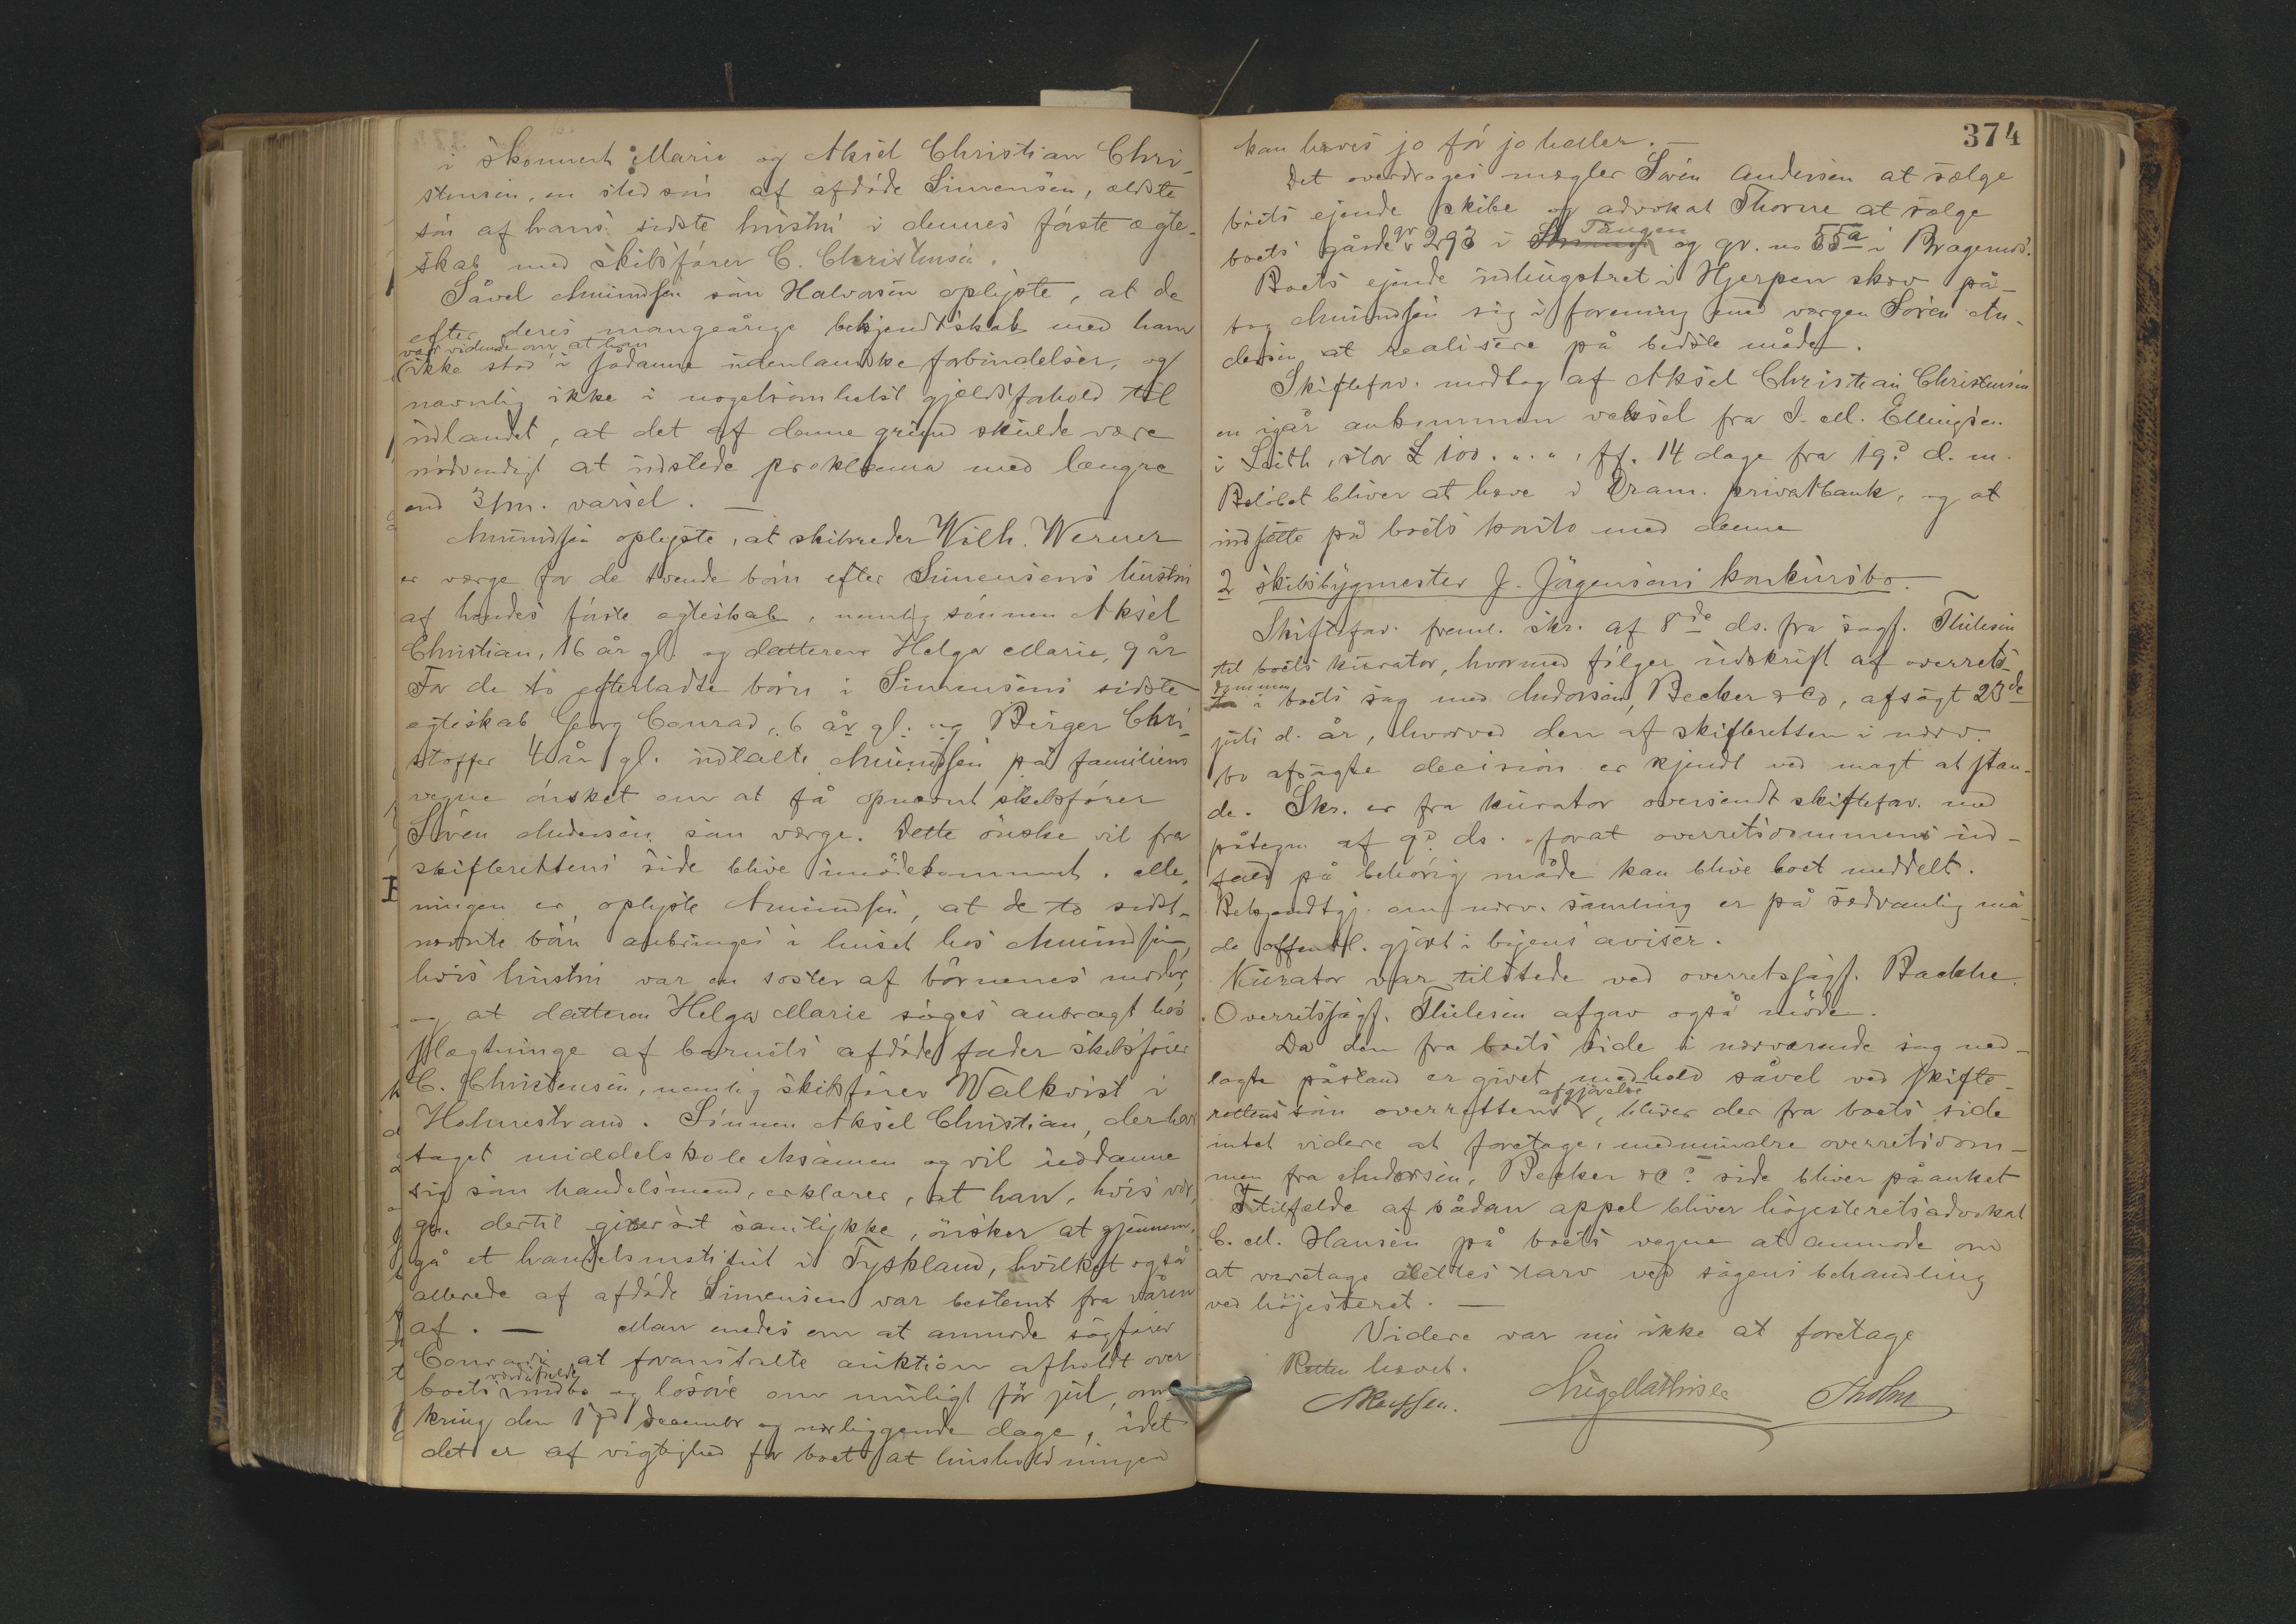 i skonnert Marie og Aksel Christian Chri-
stensen, en stedsön af afdöde Simensen, eldste
sön af hans sidste hustru i dennes förste ægte-
skab med skibsförer C. Christensen.
Såvel Amundsen som Halvorsen oplyste, at de
efter deres mangeårige bekjendtskab med ham
var vidende om, at han
ikke stod i sådanne udenlandske forbindelser, og
navnlig ikke i nogetsomhelst gjeldsforhold til
udlandet, at det af denne grund skulde være
nödvendigt at udstede proklama med længre
end 3 m. varsel. —
Amundsen oplyste, at skibsreder Wilh. Werner
er værge for de tvende börn efter Simensens hustru
af hendes förste egteskab, nemlig sönnen Aksel
Christian, 16 år gl. og datteren Helga Marie, 9 år
For de to efterladte börn i Simensens sidste
egteskab Georg Conrad, 6 år gl. og Birger Chri-
stoffer 4 år gl. udtalte Amundsen på familiens
vegne önsket om at få opnævnt skibsförer
Sören Andersen som værge. Dette önske vil fra
skifterettens side blive imödekommet. Me-
ningen er, oplyste Amundsen, at de to sidst-
nævnte börn anbringes i huset hos Amundsen,
hvis hustru var en söster af börnenes moder,
og at datteren Helga Marie söges anbragt hos
slægtninge af barnets afdöde fader skibsförer
C. Christensen, nemlig skibsförer Walkvist i
Holmestrand. Sönnen Aksel Christian, der har
taget middelskoleeksamen og vil uddanne
sig som handelsmand, erklærer, at han, hvis vær-
gen dertil giver sit samtykke, önsker at gjennem-
gå et handelsinstitut i Tyskland, hvilket også
allerede af afdöde Simensen var bestemt fra våren
af. — Man enedes om at anmode sagförer
Conradi at foranstalte auktion afholdt over
boets værdifulde indbo og lösöre om muligt för jul, om-
kring den 17d december og nærliggende dage, idet
det er af vigtighed for boet, at husholdningen
374
kan hæves jo för jo heller. —
Det overdroges mægler Sören Andersen at sælge
boets ejende skibe og advokat Thorne at sælge
boets gårde gr 293 i Tangen og gr. no 55a i Bragernes.
Boets ejende udhugstret i Hjerpen skov på-
tog Amundsen sig i forening med værgen Sören An-
dersen at realisere på bedste måde.
Skiftefav. modtog af Aksel Christian Christensen
en igår ankommen veksel fra J. M. Ellingsen
i Leith, stor £ 100. „. „, ff. 14 dage fra 19d d. m.
Belöbet bliver at hæve i Dram. privatbank, og at
indsætte på boets konto med denne
2 skibsbygmester J. Jörgensens konkursbo. —
Skiftefav. freml. skr. af 8de ds. fra sagf. Thilesen
til boets kurator, hvormed fölger udskrift af overrets-
dommen i boets sag med Andorsen, Becker & Co, afsagt 23de
juli d. år, hvorved den af skifteretten i nærv.
bo afsagte decision er kjendt ved magt at stan-
de. Skr. er fra kurator oversendt skiftefav. med
påtegn. af 9d ds. forat overretsdommens ind-
hold på behörig måde kan blive boet meddelt.
Bekjendtgj. om nærv. samling er på sædvanlig må-
de offentl. gjort i byens aviser.
Kurator var tilstede ved overretssagf. Backke.
Overretssagf. Thilesen afgav også möde.
Da den fra boets side i nærværende sag ned-
lagte påstand er givet medhold såvel ved skifte-
rettens som overrettens afgjörelse, bliver der fra boets side
intet videre at foretage, medmindre overretsdom-
men fra Andorsen, Becker & Co side bliver påanket
I tilfælde af sådan appel bliver höjesteretsadvokat
C. M. Hansen på boets vegne at anmode om
at varetage dettes tarv ved sagens behandling
ved höjesteret. —
Videre var nu ikke at foretage
Retten hævet.
Aug Mathisen Tholm